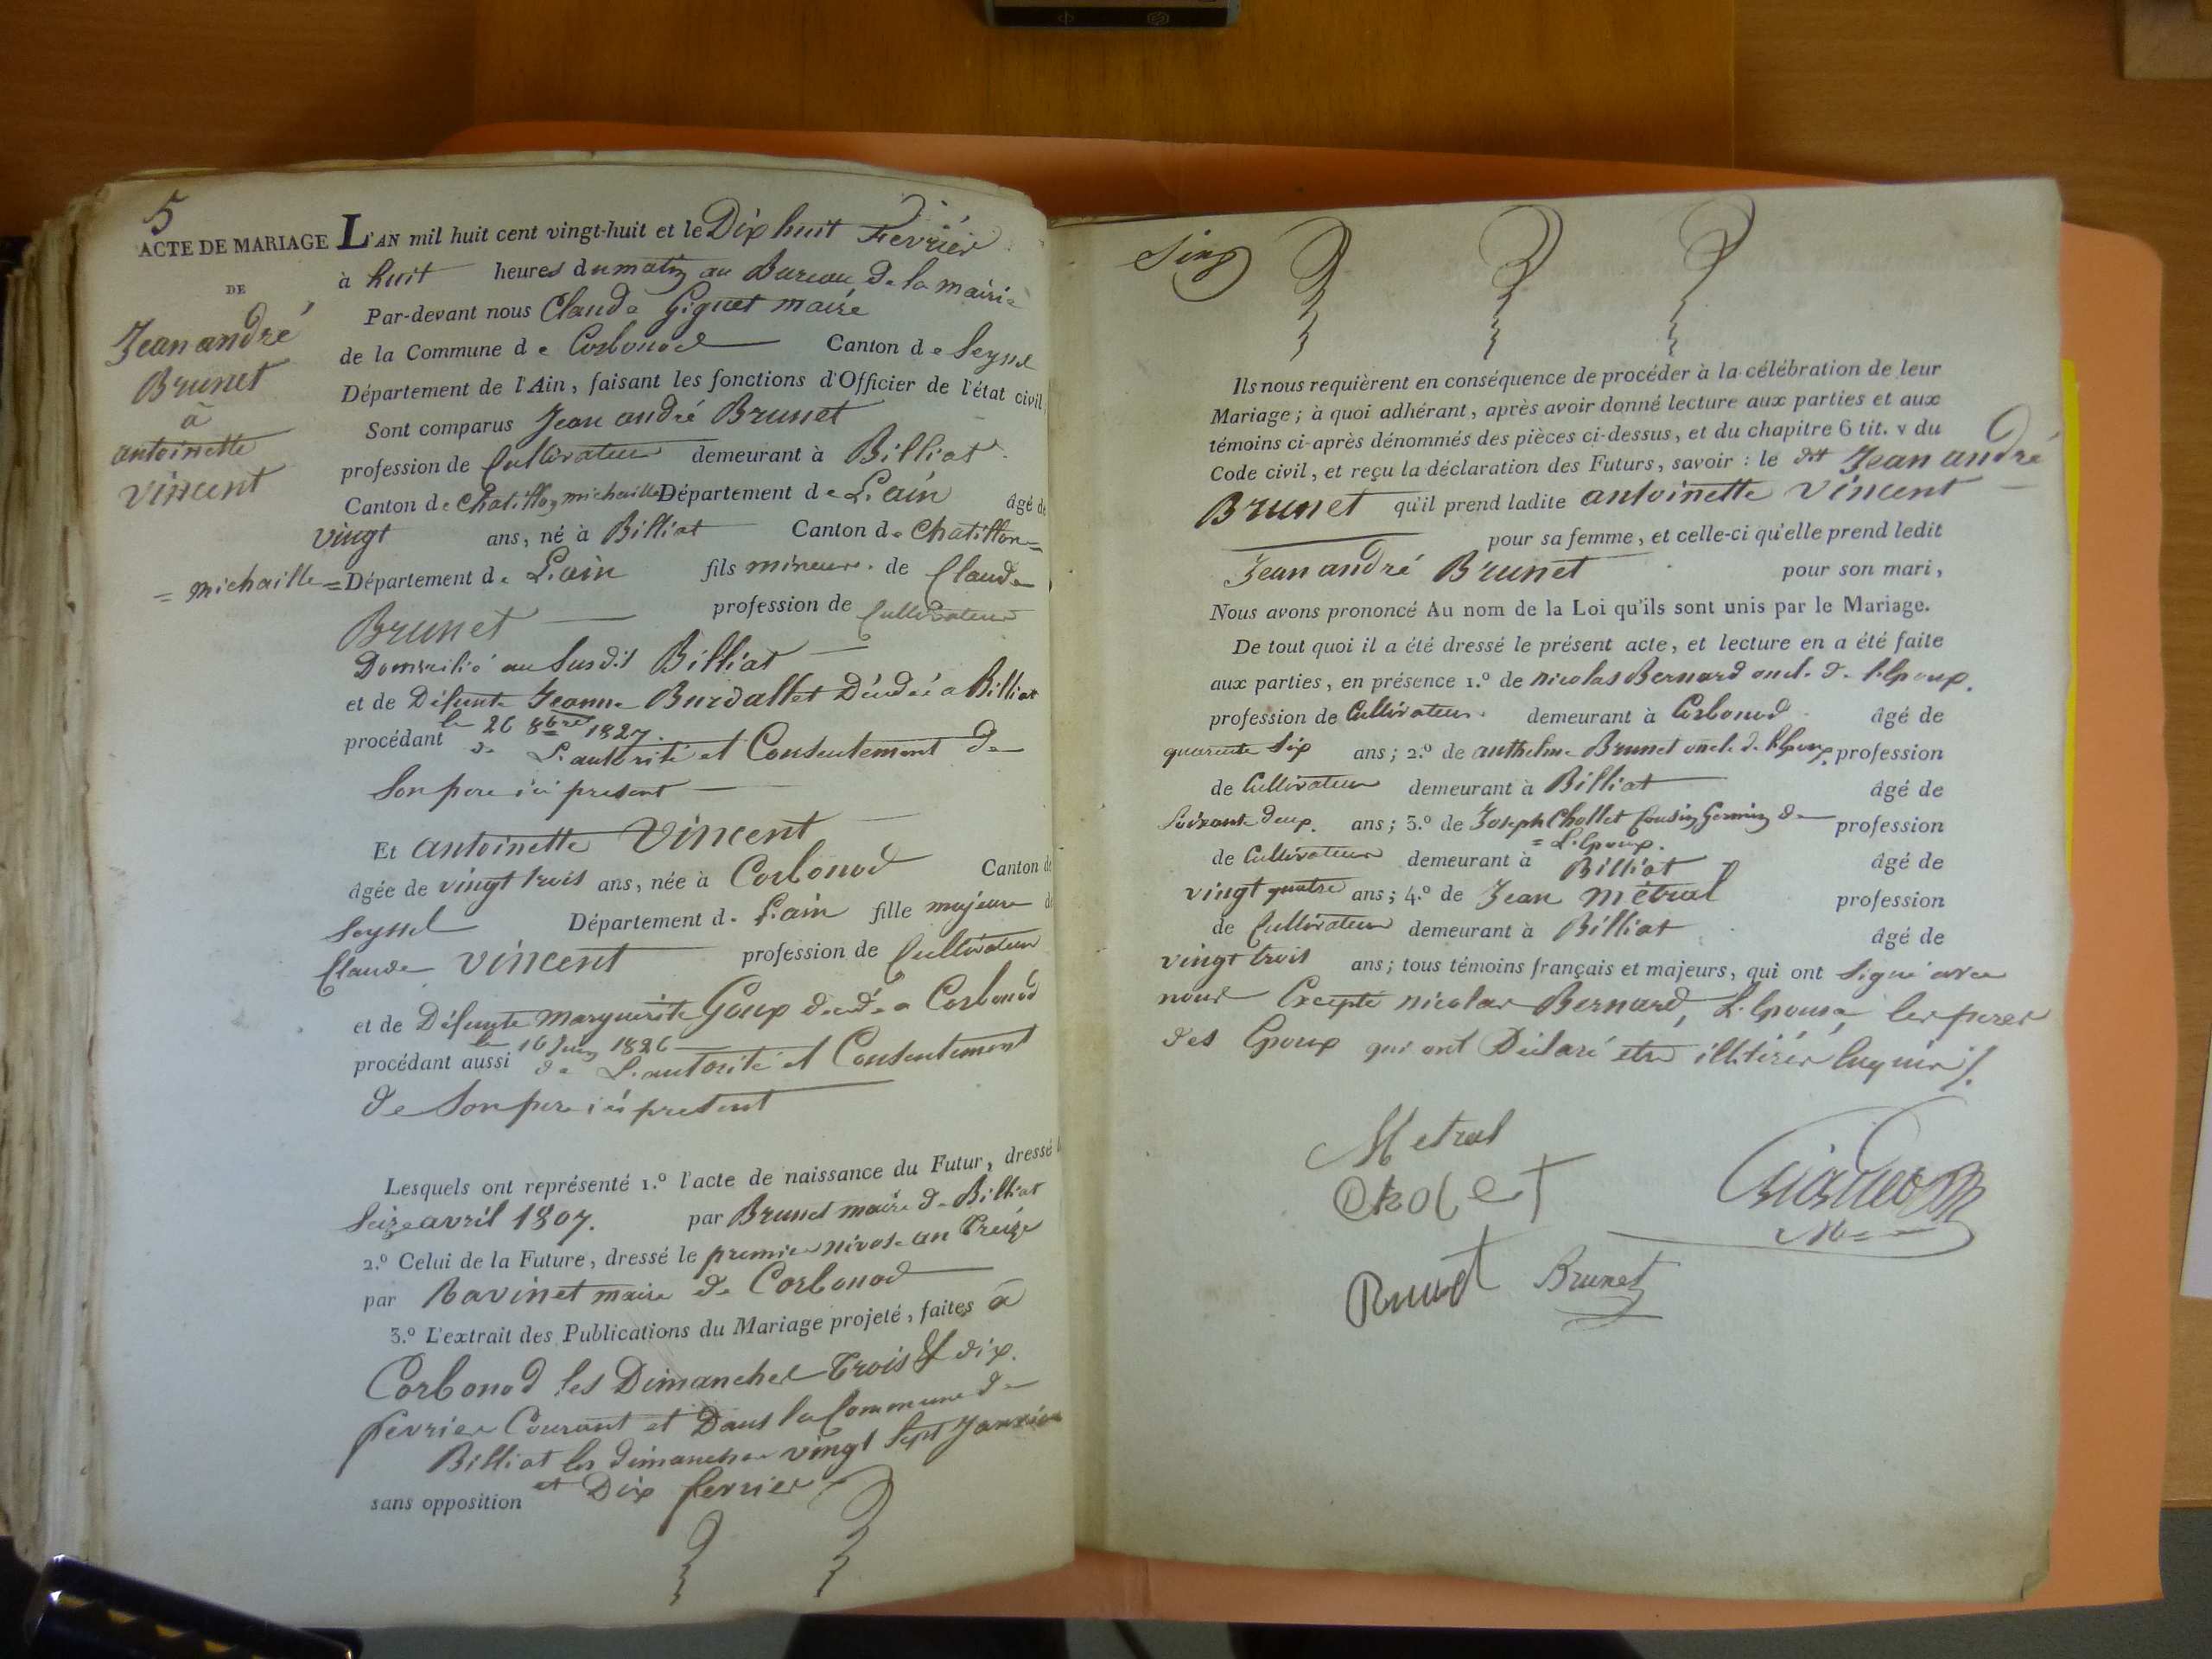 5
ACTE DE MARIAGE
DE
Jean andré
Brunet
à
antoinette
Vincent
L'AN mil huit cent vingt-huit et le Dix huit Fevrier
à huit heures du matin au Bureau de la mairie
Par-devant nous Claude Giguet maire
de la Commune de Corbonod Canton de Seyssel
Département de l'Ain, faisant les fonctions d'Officier de l'état civil
Sont comparus Jean andré Brunet
profession de Cultivateur demeurant à Billiat
Canton de Chatillon michaille Département de L'ain âgé de
vingt ans, né à Billiat Canton de Chatillon=
= michaille = Département de L'ain fils mineur de Claude
Brunet profession de Cultivateur
Domicilié au Susdit Billiat
et de Défunte Jeanne Burdallet Décédée a Billiat
le 26 8bre 1827.
procédant de L'autorité et Consentement de
Son pere ici present
Et antoinette Vincent
âgée de vingt trois ans, née à Corbonod Canton de
Seyssel Département de L'ain fille majeure de
Claude Vincent profession de Cultivateur
et de Défunte Marguerite Goux décédée a Corbonod
le 16 Juin 1826
procédant aussi de L'autorité et Consentement
de Son pere ici present
Lesquels ont représenté 1.º l'acte de naissance du Futur, dressé le
Seize avril 1807. par Brunet maire de Billiat
2.º Celui de la Future, dressé le premier nivose an Treize
par Ravinet maire de Corbonod
3.º L'extrait des Publications du Mariage projeté, faites à
Corbonod les Dimanches Trois & dix
fevrier Courant et Dans la Commune de
Billiat les dimanches vingt Sept Janvier
et Dix fevrier
sans opposition
Ils nous requièrent en conséquence de procéder à la célébration de leur
Mariage; à quoi adhérant, après avoir donné lecture aux parties et aux
témoins ci-après dénommés des pièces ci-dessus, et du chapitre 6 tit. v du
Code civil, et reçu la déclaration des Futurs, savoir: le dit Jean andré
Brunet qu'il prend ladite antoinette Vincent
pour sa femme, et celle-ci qu'elle prend ledit
Jean andré Brunet pour son mari,
Nous avons prononcé Au nom de la Loi qu'ils sont unis par le Mariage.
De tout quoi il a été dressé le présent acte, et lecture en a été faite
aux parties, en présence 1.º de nicolas Bernard oncle de l'Epoux.
profession de Cultivateur demeurant à Corbonod âgé de
quarente Six ans; 2.º de anthelme Brunet oncle de l'Epoux profession
de Cultivateur demeurant à Billiat âgé de
Soixante deux ans; 3.º de Joseph Chollet Cousin Germin de profession
= L'Epoux.
de Cultivateur demeurant à Billiat âgé de
vingt quatre ans; 4.º de Jean Métral profession
de Cultivateur demeurant à Billiat âgé de
vingt trois ans; tous témoins français et majeurs, qui ont Signé avec
nous Excepté nicolas Bernard, L'Epouse, les peres
des Epoux qui ont Déclaré etre illitérés Enquis /.
Metral
Cholet
Brunet Brunet